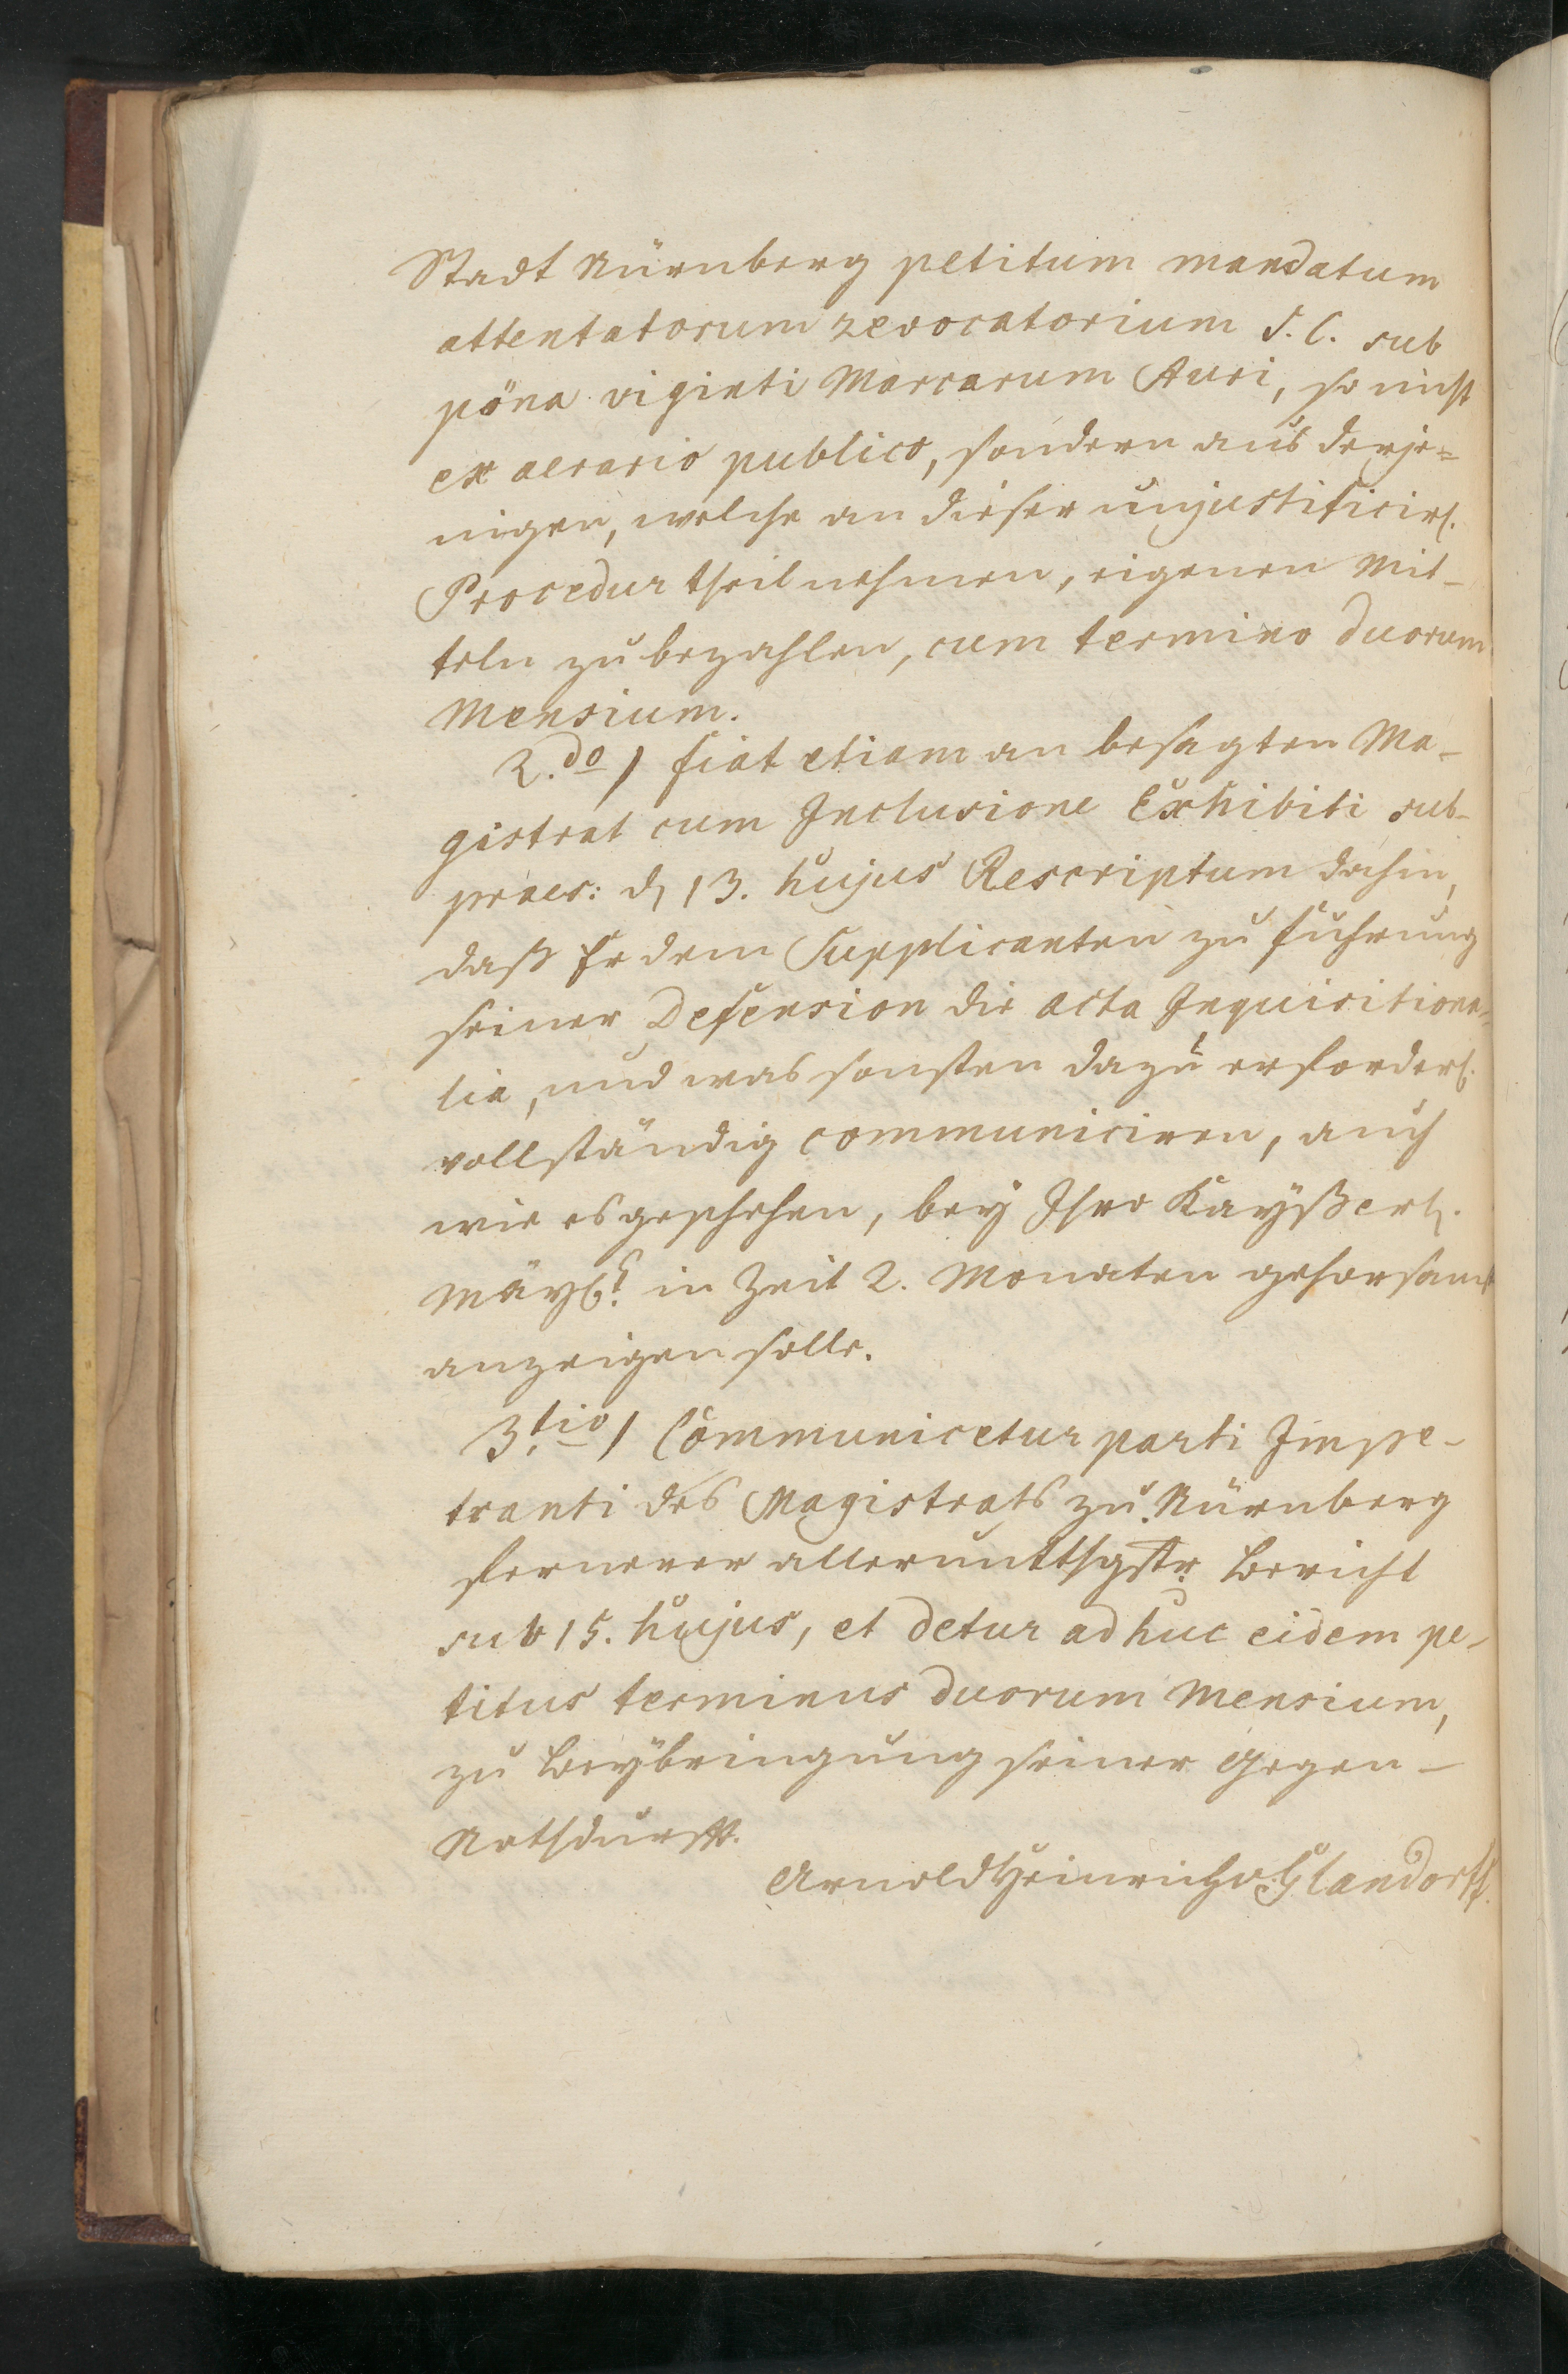 Stadt Nürnberg petitum mandatum
attentatorum revocatorium S. C. sub
pöna viginti Marcarum Auri, so nicht
ex aerario publico, sondern aus derje=
nigen, welche an dieser unjustificirl.
Procedur theil nehmen, eigenen Mit-
teln zu bezahlen, cum termino duorum
Mensium.
2.do) fiat etiam an besagten Ma-
gistrat cum Inclusione Exhibiti sub-
praes: d. 13. hujus Rescriptum dahin,
daß Er dem Supplicanten zu führung
seiner Defension die acta Inquisitiona-
lia, und was sonsten dazu erforderl.
vollständig communiciren, auch
wie es geschehen, bey Ihro Kayßerl.
Mäyt. in Zeit 2. Monaten gehorsamst
anzeigen solle.
3.tio) Communicetur parti Impe-
tranti des Magistrats zu Nürnberg
fernerer allerunttthgstr. Bericht
sub 15. hujus, et detur adhuc eidem pe-
titus terminus duorum Mensium,
zu Beybringung seiner Gegen-
Nothdurfft.
Arnold Heinrich v. Glandorff.